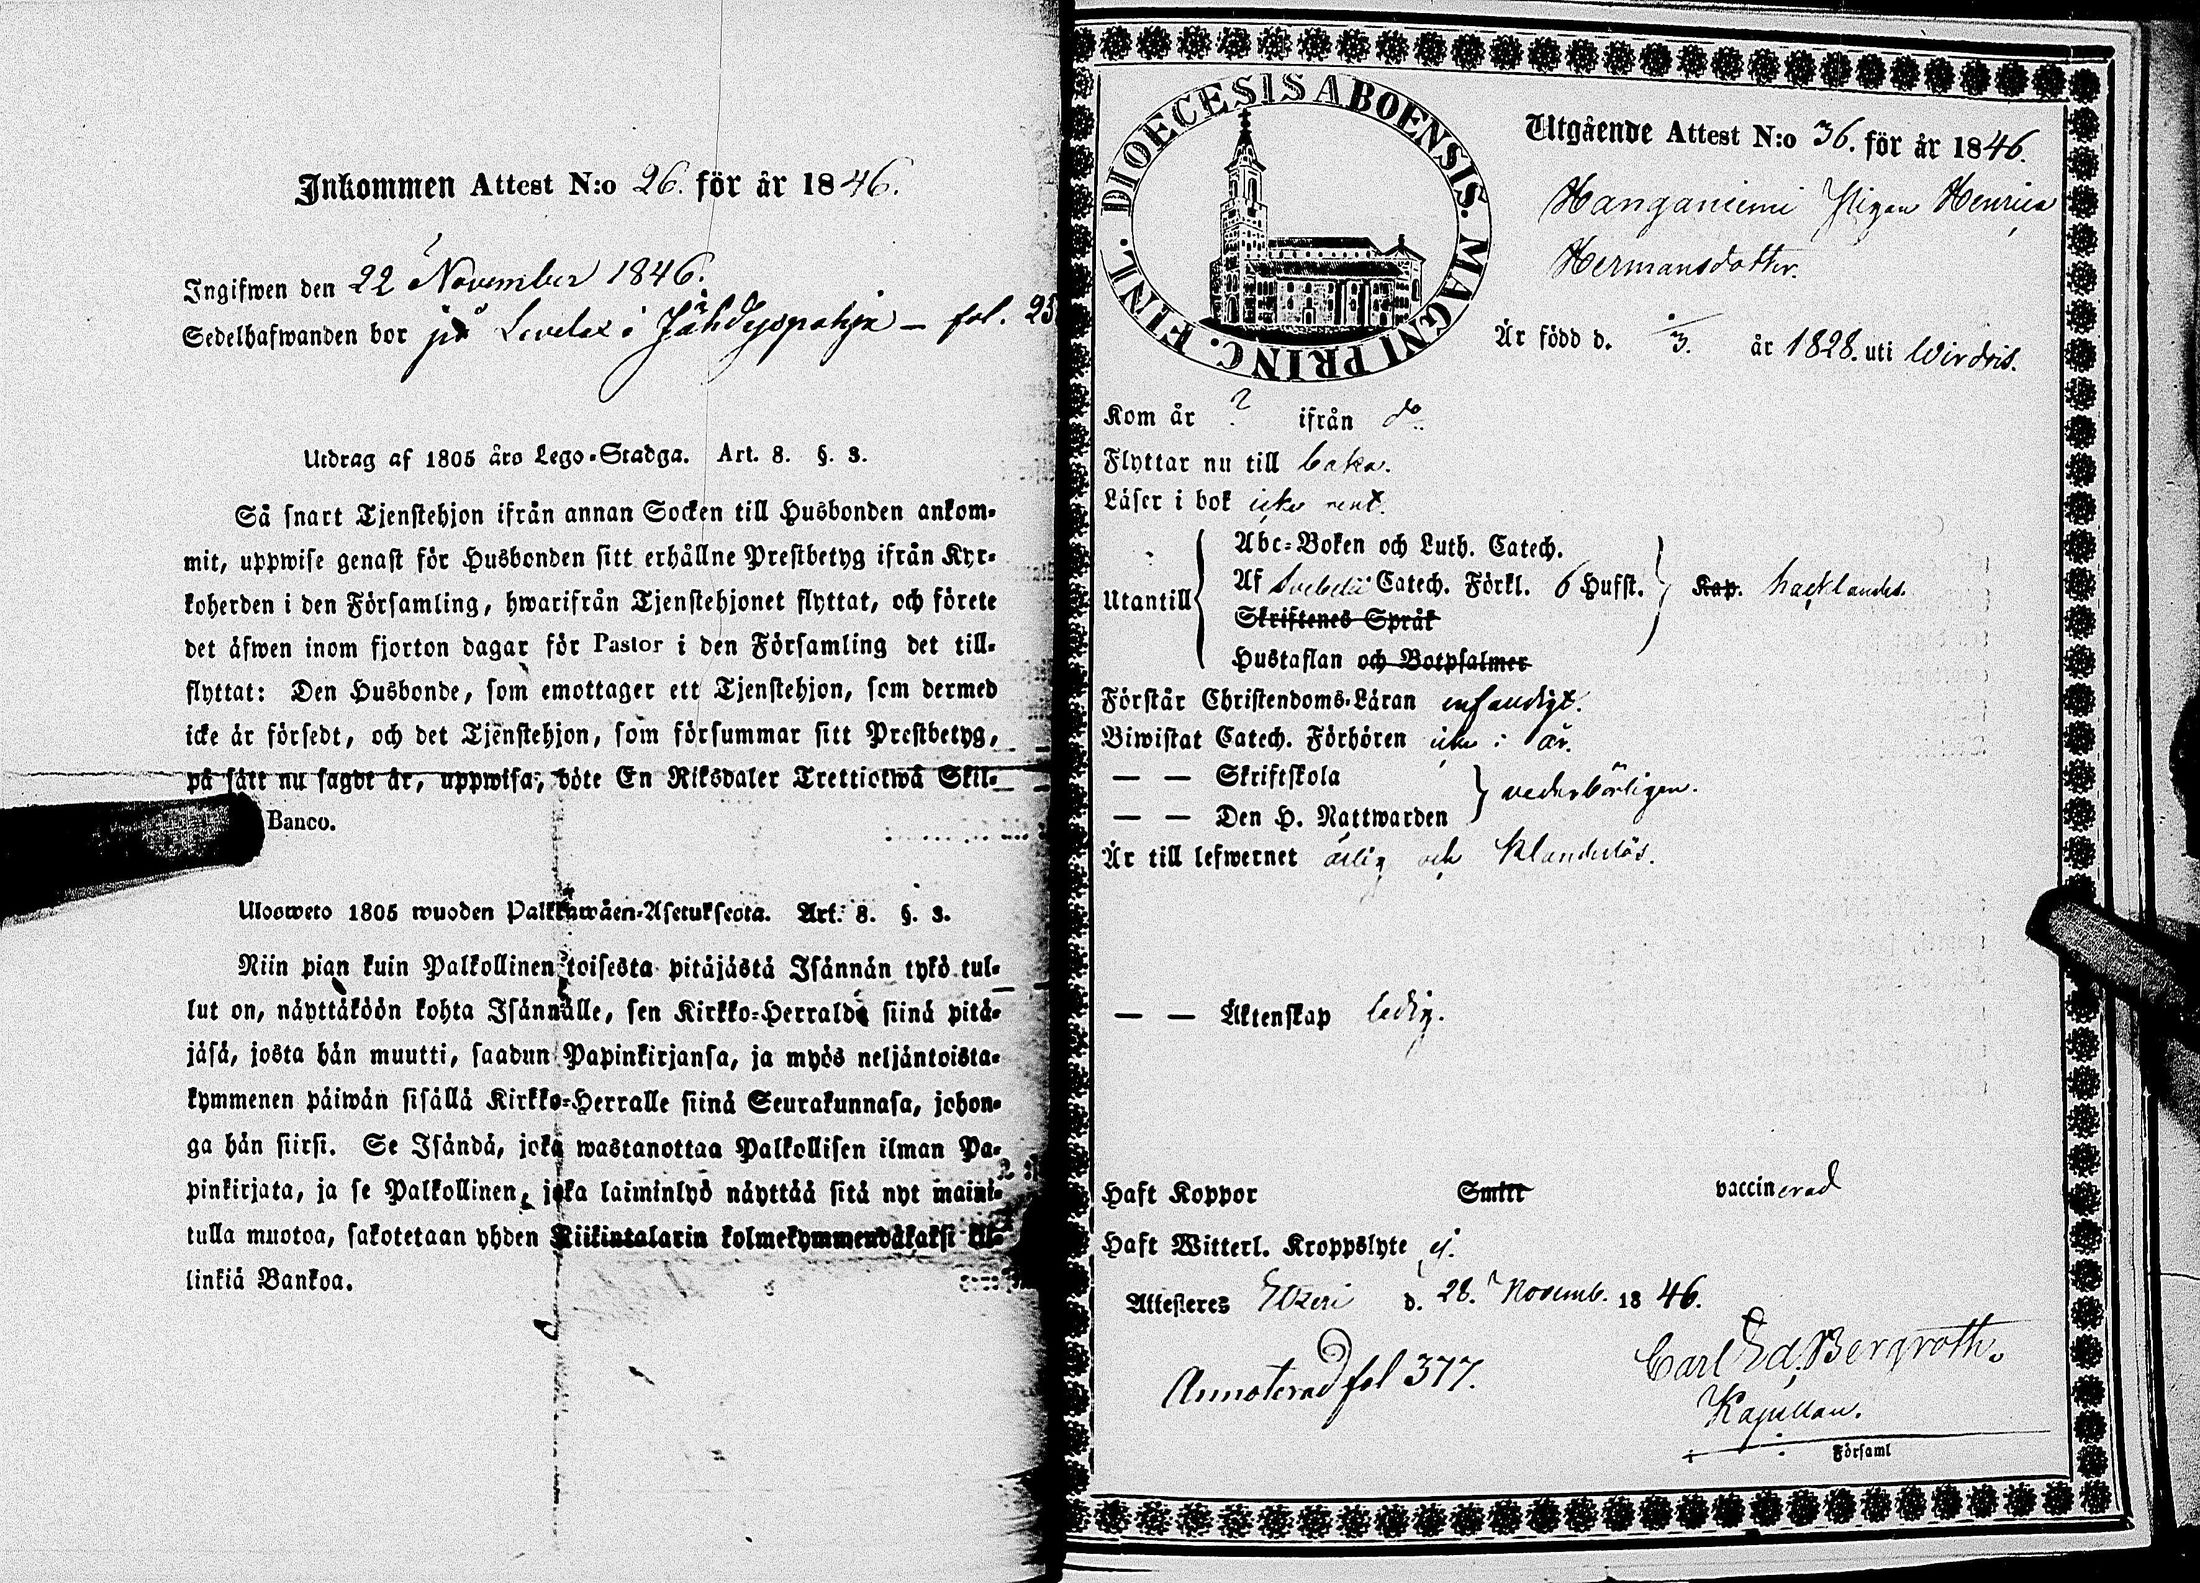 Inkommen Attest N:o 26. för år 1846.
Ingifwen den 22 November 1846.
Sedelhafwanden bor på Levelax i Jähdyspohja — fol. 25
Utdrag af 1805 års Lego-Stadga. Art. 8. §. 3.
Så snart Tjenstehjon ifrån annan Socken till Husbonden ankom-
mit, uppwise genast för Husbonden sitt erhållne Prestbetyg ifrån Kyr-
koherden i den Församling, hwarifrån Tjenstehjonet flyttat, och förete
det äfwen inom fjorton dagar för Pastor i den Församling det till-
flyttat: Den Husbonde, som emottager ett Tjenstehjon, som dermed
icke är försedt, och det Tjenstehjon, som försummar sitt Prestbetyg,
på sätt nu sagdt är, uppwisa, böte En Riksdaler Trettiotwå Skil-
Banco.
Ulosweto 1805 wuoden Palkkawäen-Asetuksesta. Art. 8. §. 3.
Niin pian kuin Palkollinen toisesta pitäjästä Isännän tykö tul-
lut on, näyttäköön kohta Isännälle, sen Kirkko-Herralda siinä pitä-
jäsä, josta hän muutti, saadun Papinkirjansa, ja myös neljäntoista-
kymmenen päiwän sisällä Kirkko-Herralle siinä Seurakunnasa, johon-
ga hän siirsi. Se Isändä, joka wastanottaa Palkollisen ilman Pa-
pinkirjata, ja se Palkollinen, joka laiminlyö näyttää sitä nyt maini-
tulla muotoa, sakotetaan yhden Riikintalarin kolmekymmendäkaksi kil-
linkiä Bankoa.
DIOECESIS ABOENSIS. MAGNI PRINC. FINL.
Utgående Attest N:o 36. för år 1846.
Hanganiemi Pigan Henrica
Hermansdotter.
Är född d. 3. år 1828. uti Wirdois.
Kom år ? ifrån do.
Flyttar nu till
Läser i bok icke rent.
Abc-Boken och Luth. Catech.
Utantill Af Svebelii Catech. Förkl. 6 Hufst. Kap. hacklandes.
Skriftenes Språk
Hustaflan och Botpsalmer
Förstår Christendoms-Läran enfaldigt.
Biwistat Catech. Förhören icke i år.
— — Skriftskola
vederbörligen.
— — Den H. Nattwarden
Är till lefwernet ärlig och klanderlös.
— — Äktenskap ledig.
Haft Koppor Smitt vaccinerad
Haft Witterl. Kroppslyte ej.
Attesteres Etzeri d. 28. Novemb. 1846.
Carl Ed. Bergroth.
Annoterad fol 377.
Kapellan.
Församl